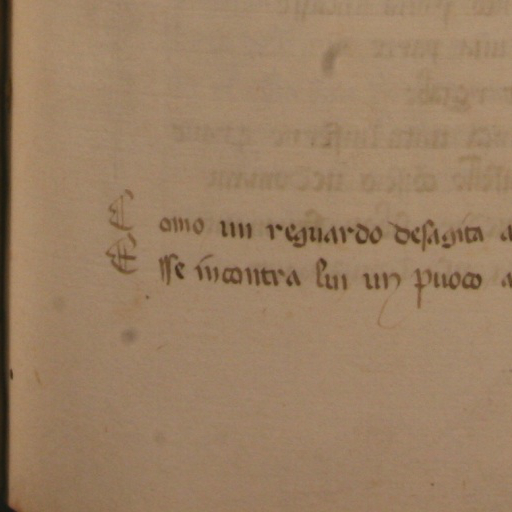 Como un reguardo desagita a
Esse incontra lui un puoco a